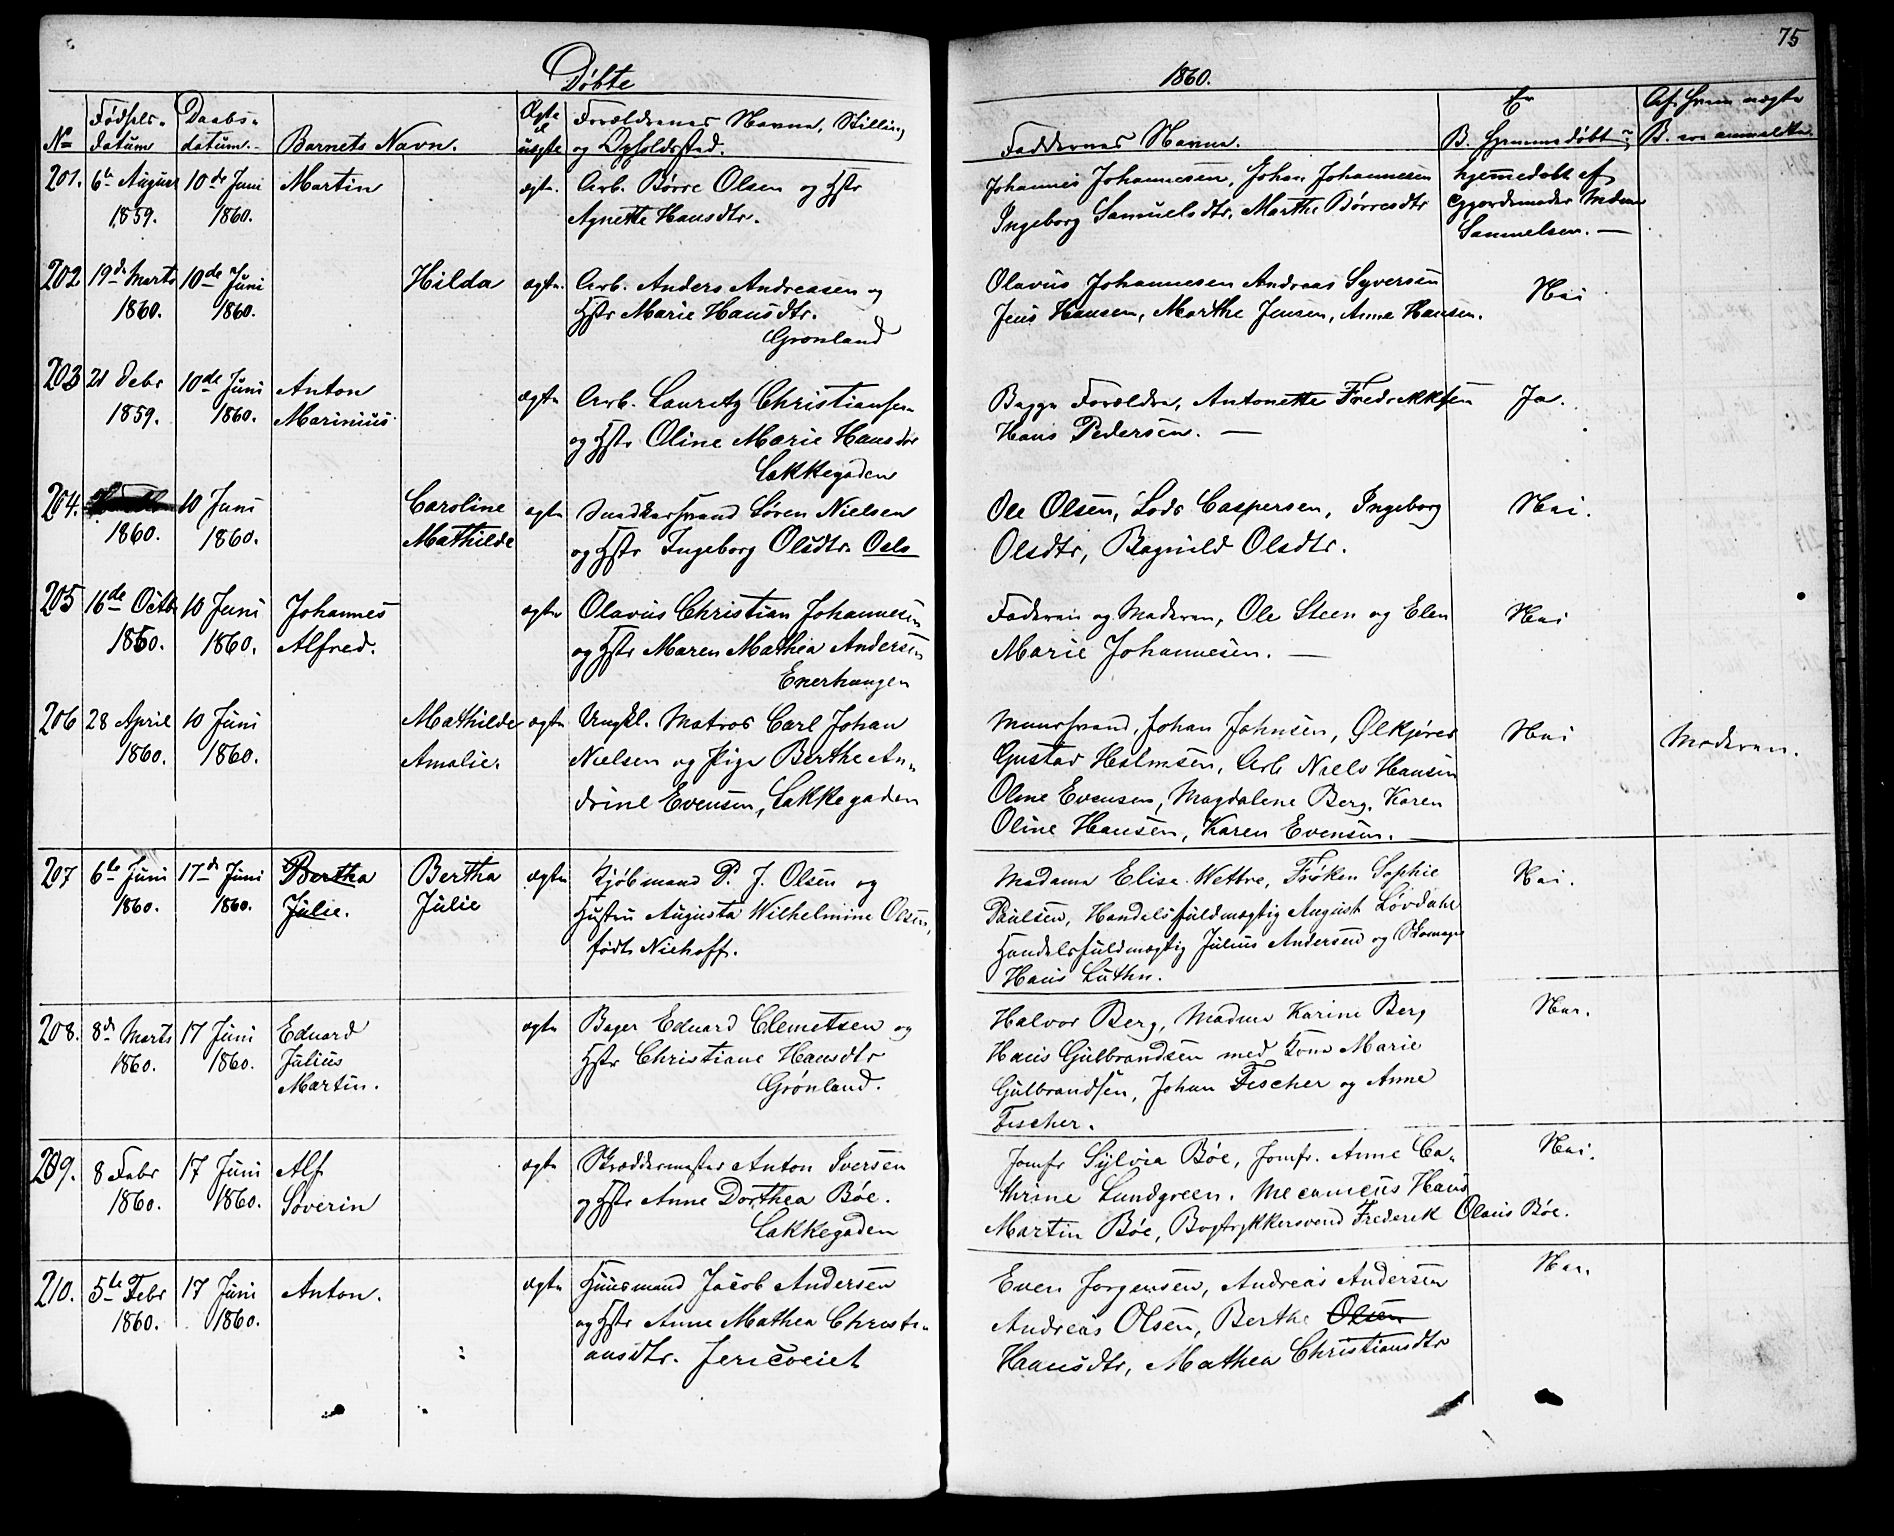 75
Døbte
1860.
No
Fødsels-
datum
Daabs-
datum.
Barnets Navn.
Ægte
el
uægte
Forældrenes Navne, Stilling
og Opholdssted.
Faddernes Navne.
Er
B. hjemmedøbt?
Af hvem uægte
B. ere anmeldte.
201. 6te August 10de Juni Martin ægte. Arb. Børre Olsen og Hstr Johannes Johannesen, Johan Johannesen hjemedøbt af
1859. 1860. Agnethe Hansdtr. Ingeborg Samuelsdtr, Marthe Børresdtr Gjordemoder Madm
Samuelsen. —
202 19de Marts 10de Juni Hilda ægte. Arb. Anders Andreasen og Olavus Johannesen Andreas Syversen Nei
1860. 1860. Hstr Marie Hansdtr. Jens Hansen, Marthe Jensen, Anna Hansen.
Grønland
203 21 Debr 10de Juni Anton ægte Arb. Lauritz Christiansen Begge Forældre, Antonette Fredrekksen Ja.
1859. 1860. Marinius. og Hstr Oline Marie Hansdtr Hans Pedersen. —
Lakkegaden
204. 10 Juni Caroline ægte Snedkersvend Søren Nielsen Ole Olsen, Lods Caspersen, Ingeborg Nei.
1860. 1860. Mathilde og Hstr Ingeborg Olsdtr. Oslo Olsdtr, Ragnild Olsdtr.
205 16de Octb 10 Juni Johannes ægte Olavus Christian Johannesen Faderen og Moderen, Ole Steen og Elen Nei
1860. 1860. Alfred. og Hstr Maren Mathea Andersen Marie Johannesen. —
Enerhaugen
206 28 April 10 Juni Mathilde ægte Ungkl. Matros Carl Johan Muursvend, Johan Johnsen, Ølkjører Nei Moderen.
1860. 1860. Amalie. Nielsen og Pige Berthe An- Gustav Holmsen, Arb Niels Hansen
drine Evensen, Lakkegaden Oline Evensen, Magdalene Berg, Karen
Oline Hansen, Karen Evensen. —
207 6te Juni 17de Juni Bertha Bertha ægte Kjøbmand P. J. Olsen og Madame Elise Wettre, Frøken Sophie Nei.
1860. 1860. Julie. Julie Hustru Augusta Wilhelmine Olsen, Paulsen, Handelsfuldmægtig August Løvdahl
født Niehoff. Handelsfuldmægtig Julius Andersen og Skomager
Hans Luthn.
208. 8de Marts 17 Juni Eduard ægte Bager Eduard Clemetsen og Halvor Berg, Madme Karine Berg Nei.
1860. 1860. Julius Hstr Christiane Hansdtr Hans Gulbrandsen med Kone Marie
Martin. Grønland. Gulbrandsen, Johan Fischer og Anne
Fischer.
209. 8 Febr 17 Juni Alf ægte Skræddermester Anton Iversen Jomfr Sylvia Bøe, Jomfr. Anne Ca- Nei.
1860. 1860. Søverin og Hstr Anne Dorthea Bøe. thrine Lundgreen. Mecanicus Hans
Lakkegaden Martin Bøe, Bogtrykkersvend Frederik Olaus Bøe.
210. 5te Febr 17 Juni Anton. ægte Huusmand Jacob Andersen Even Jorgensen, Andreas Andersen Nei.
1860. 1860. og Hstr Anne Mathea Christi- Andreas Olsen, Berthe Olsen
ansdtr. Jericoveiet Hansdtr, Mathea Christiansdtr